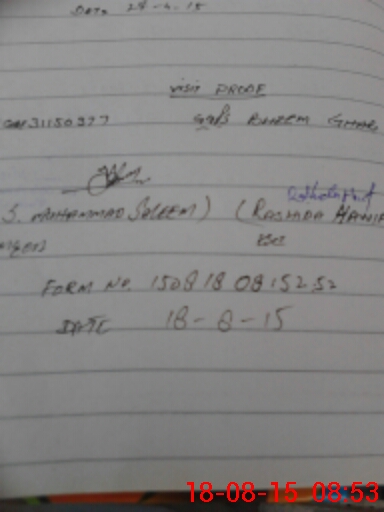 DATE 24-4-15
VISIT PROOF
31150377 GGPS BHEEM GHAR
S. MUHAMMAD SALEEM) (RASHIDA HANIF
FORM NO. 15081808152 52
DATE 18-8-15
18-08-15 08:53